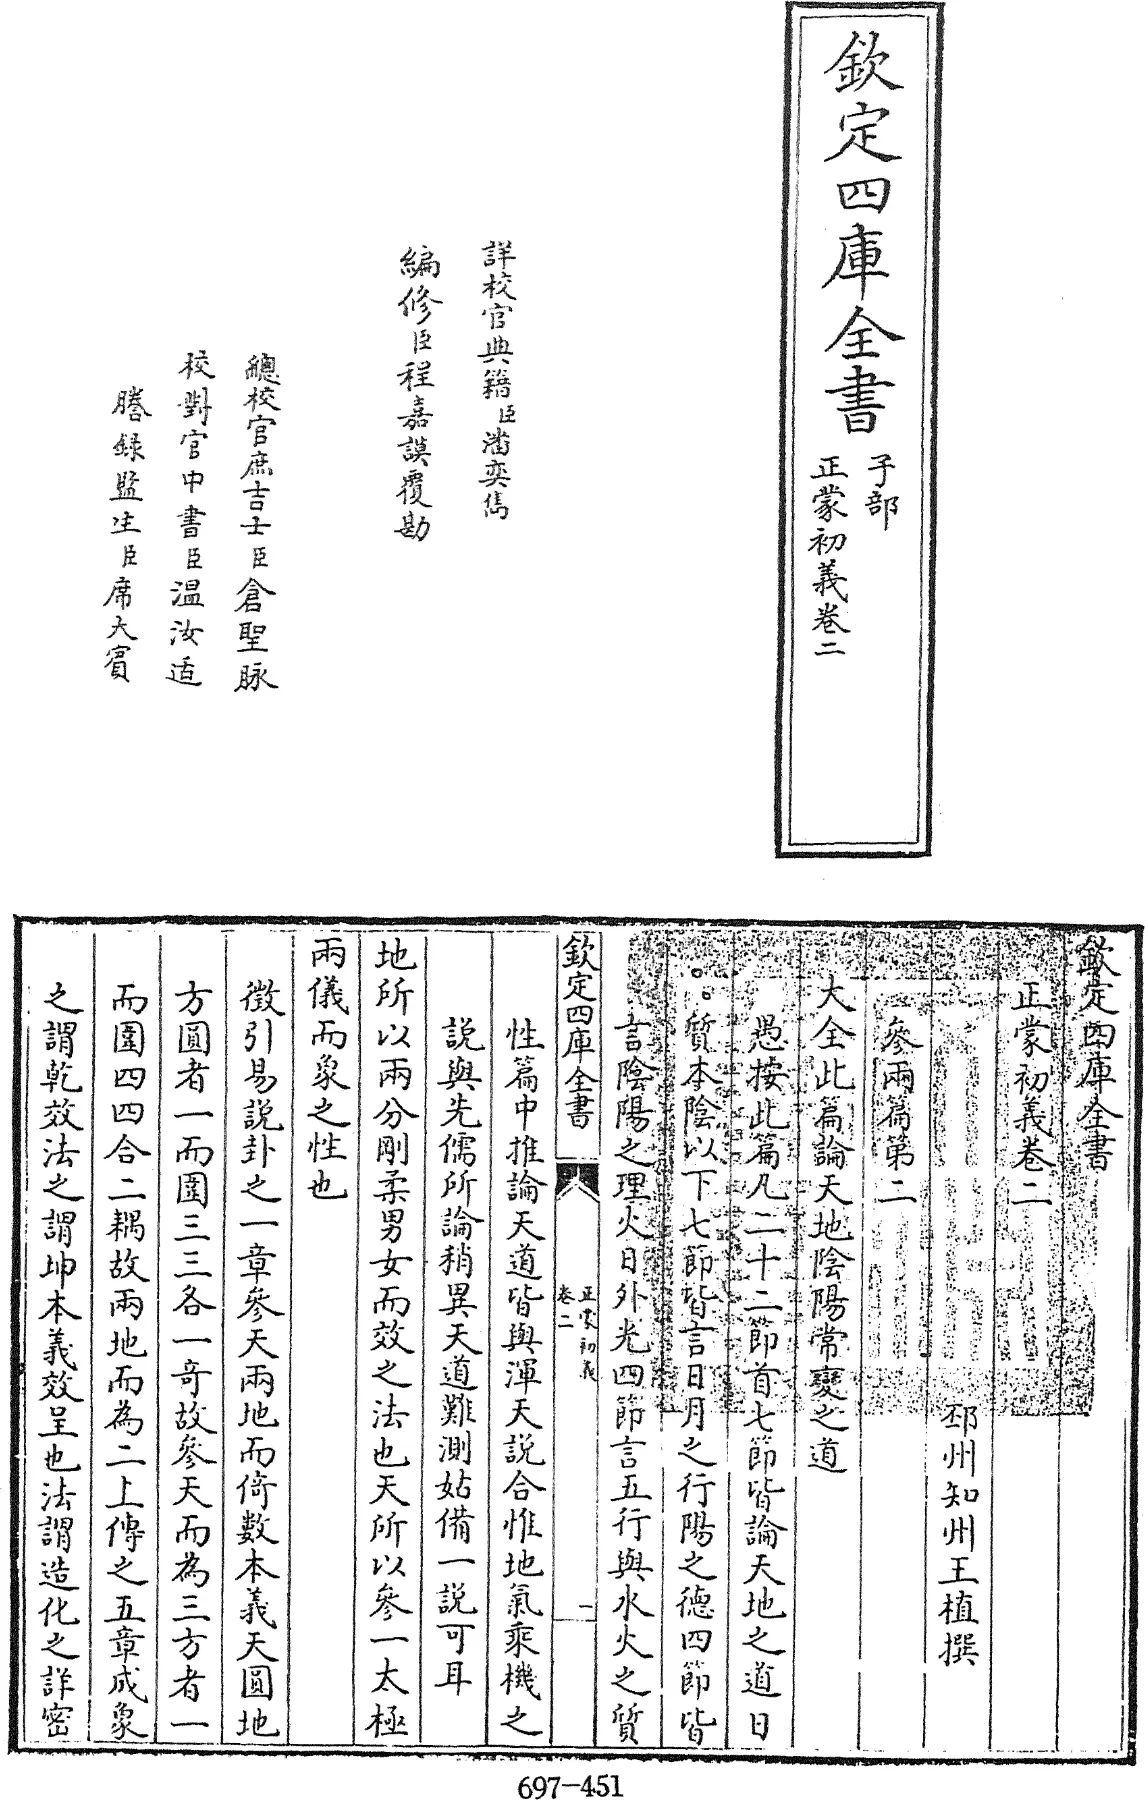 欽定四庫全書
子部
正蒙初義卷二
詳校官典籍臣潘奕雋
編修臣程嘉謨覆勘
總校官庶吉士臣倉聖脉
校對官中書臣温汝适
謄録監生臣席大賔
欽定四庫全書
正蒙初義卷二
邳州知州王植撰
參兩篇第二
大全此篇論天地陰陽常變之道
愚按此篇凡二十二節首七節皆論天地之道日
質本陰以下七節皆言日月之行陽之德四節皆
言陰陽之理火日外光四節言五行與水火之質
欽定四庫全書
正蒙初義
卷二
一
性篇中推論天道皆與渾天説合惟地氣乘機之
説與先儒所論稍異天道難測姑備一説可耳
地所以兩分剛柔男女而效之法也天所以參一太極
兩儀而象之性也
徵引易説卦之一章參天兩地而倚數本義天圓地
方圓者一而圍三三各一奇故參天而為三方者一
而圍四四合二耦故兩地而為二上傳之五章成象
之謂乾效法之謂坤本義效呈也法謂造化之詳密
697-451